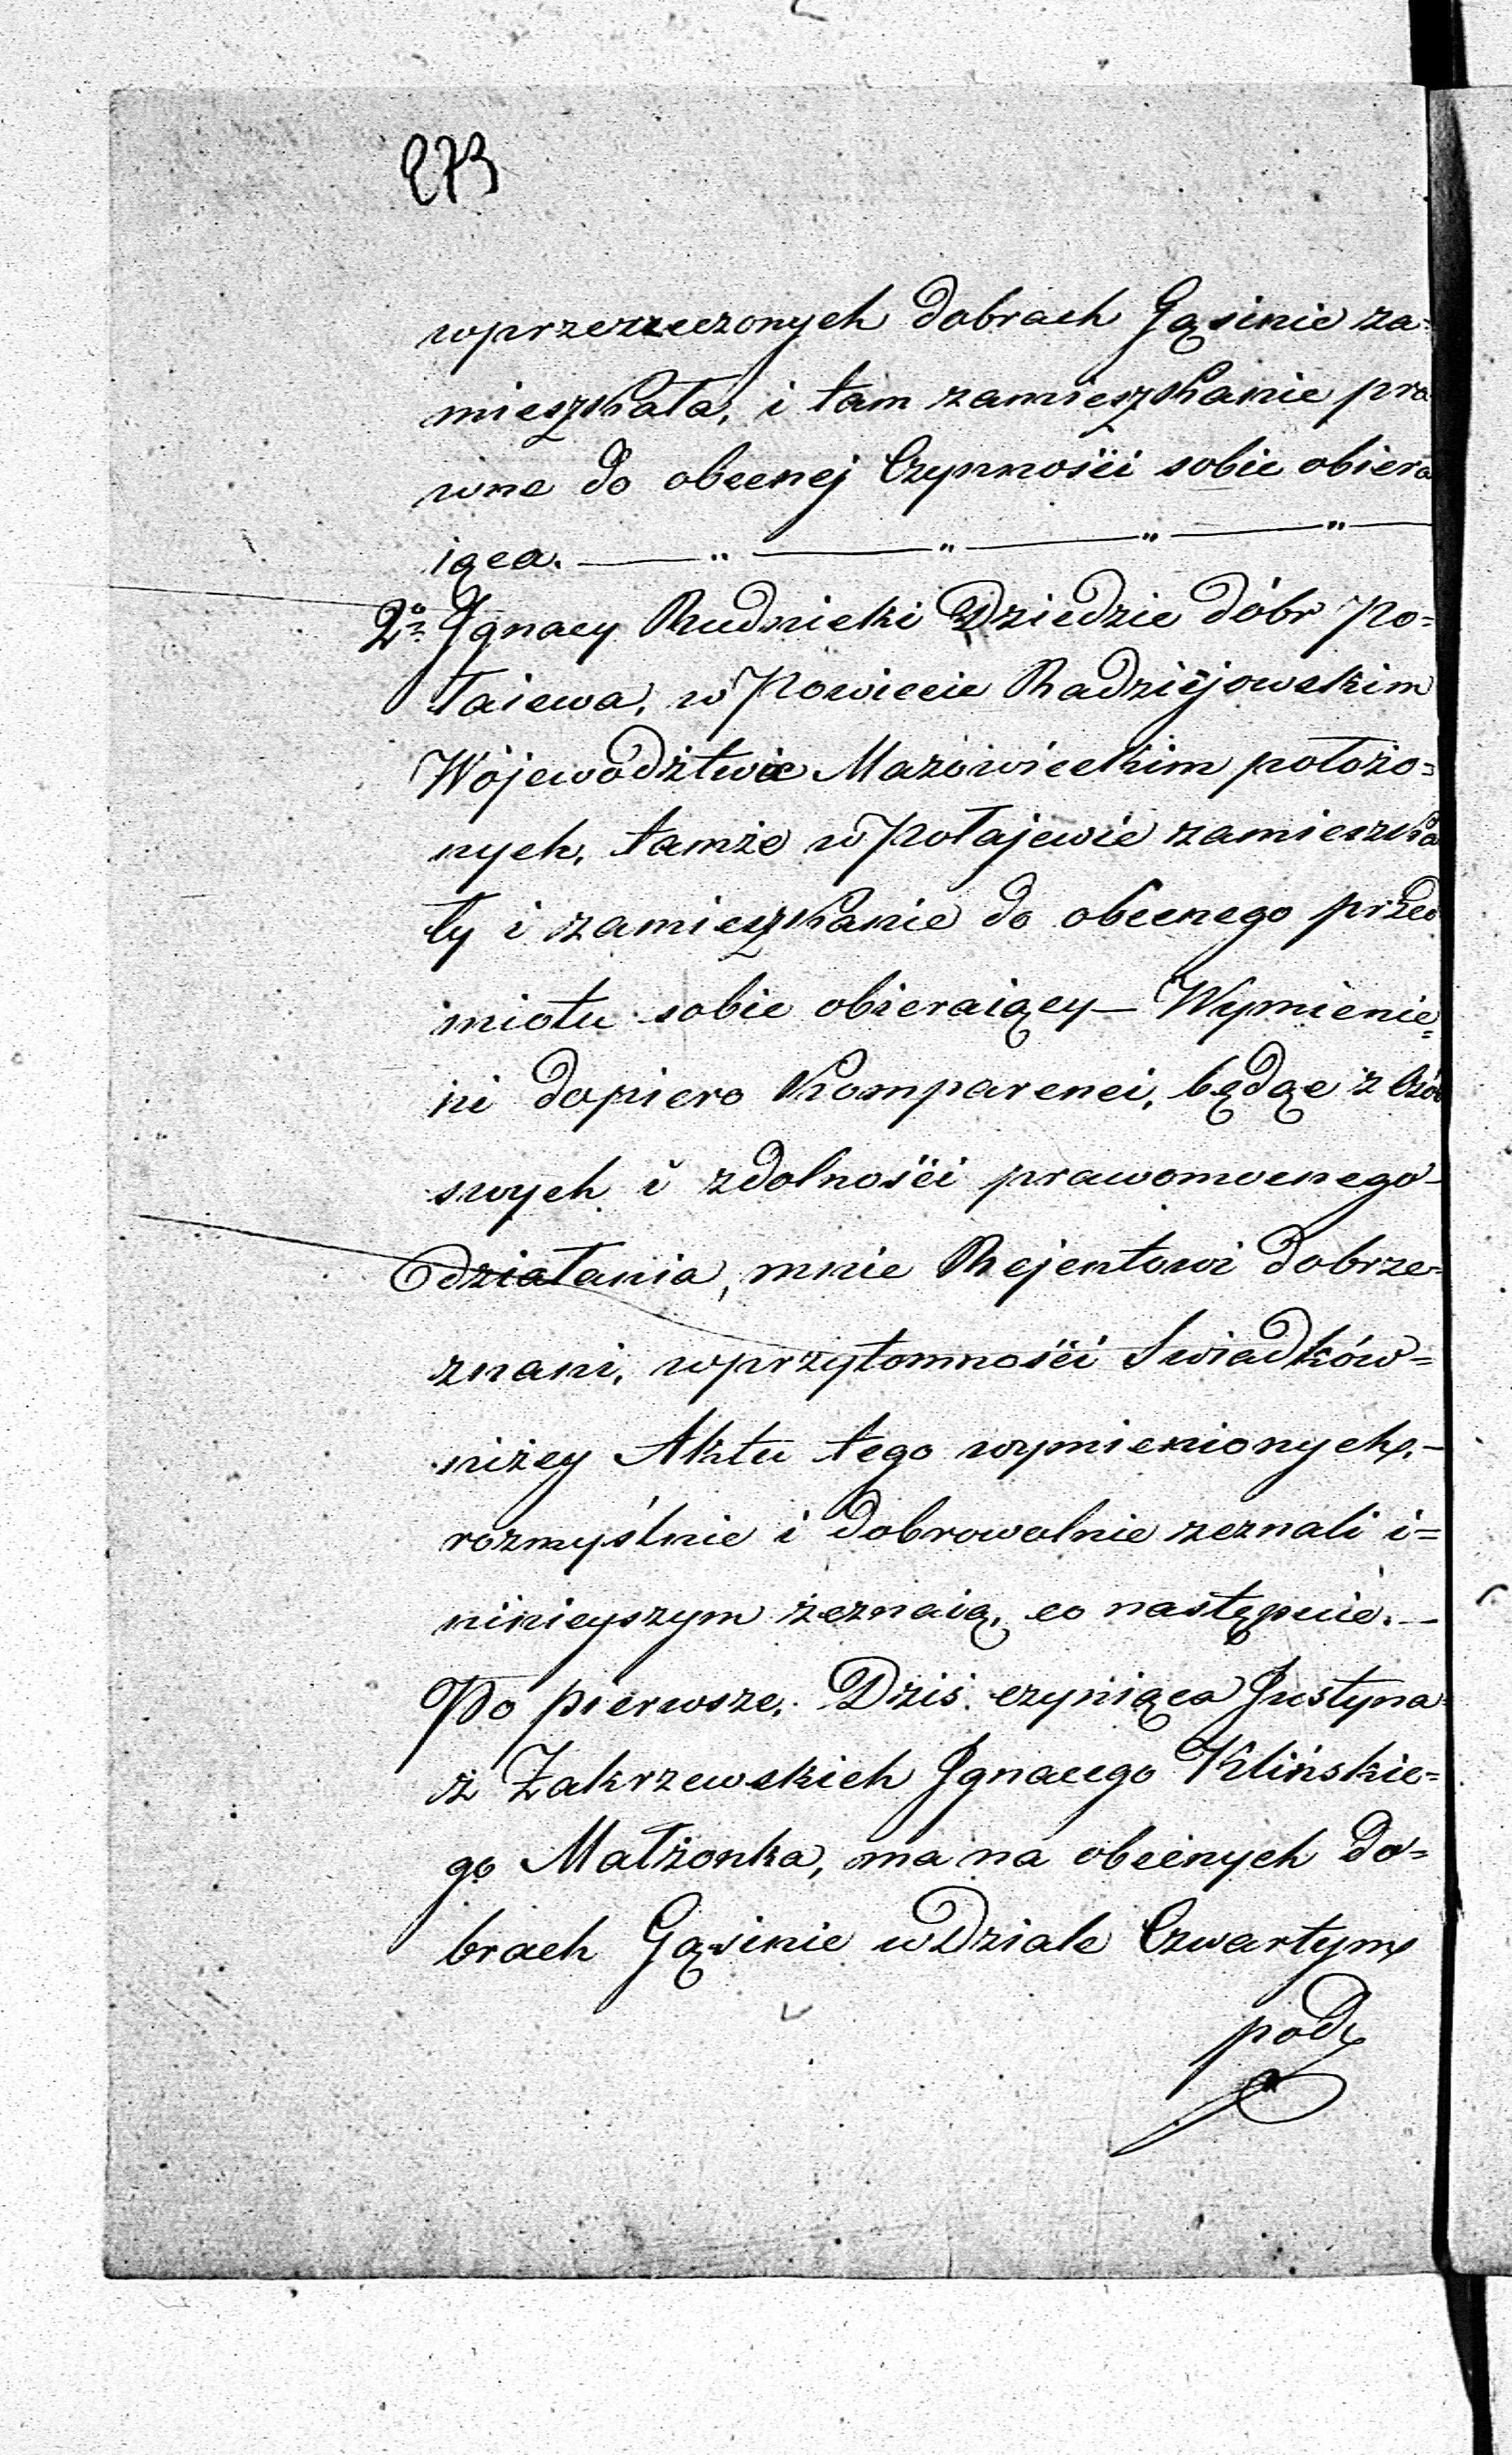 273
wprzerzeczonych dobrach Gąsinie za=
mieszkała, i tam zamieszkanie pra
wne do obecnej Czynności sobie obiera
iąca. — „ — „ — „ — „ —
2º Ignacy Rudnicki Dziedzic dóbr Po=
łaiewa, w Powiecie Radziejowskim
Wojewodztwie Mazowieckim położo=
nych, tamże w Połajewie zamieszka
ły i zamieszkanie do obecnego przed
miotu sobie obieraiący — Wymienie=
ni dopiero Komparenci, będąc z Osób
swych i zdolności prawomocnego
działania, mnie Rejentowi dobrze=
znani, wprzytomności Swiadków=
niżey Aktu tego wymienionych,—
rozmyślnie i dobrowolnie zeznali i=
ninieyszym zeznaią, co następuie. —
Po pierwsze. Dziś czyniąca Justyna
z Zakrzewskich Ignacego Klińskie=
go Małżonka, ma na obecnych Do=
brach Gąsinie w Dziale Czwartym
pod